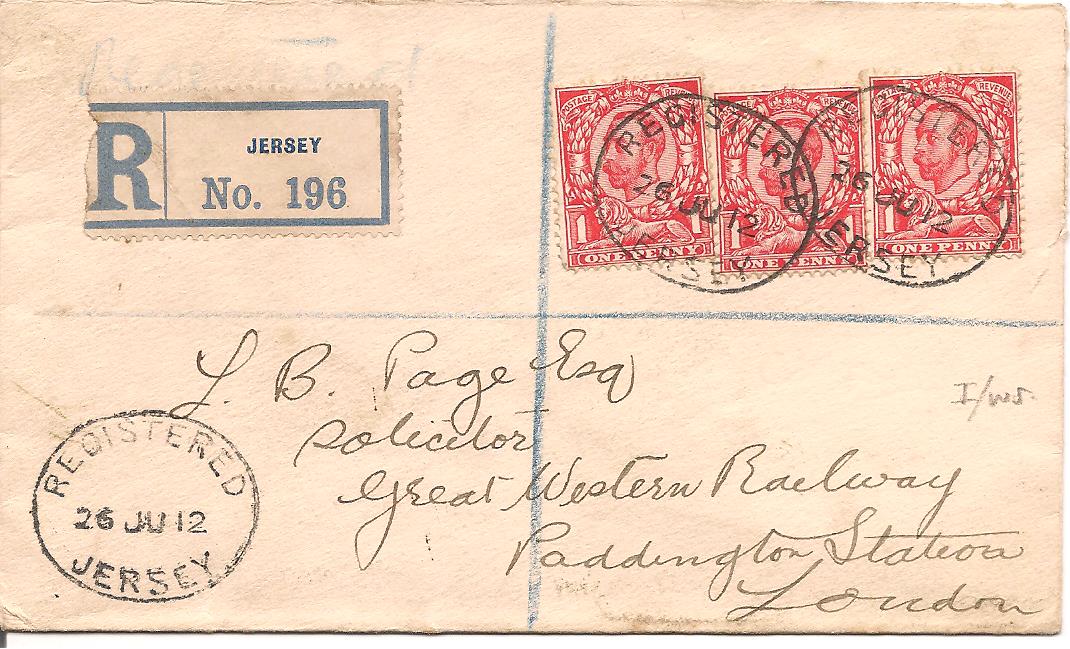 R JERSEY
No. 196
POSTAGE REVENUE
1 1
ONE PENNY
POSTAGE REVENUE
1 1
ONE PENNY
POSTAGE REVENUE
1
ONE PENNY
REGISTERED
26 JU 12
JERSEY
REGISTERED
26 JU 12
JERSEY
L. B. Page Esq
Solicitor
Great Western Railway
Paddington Station
London
REGISTERED
26 JU 12
JERSEY